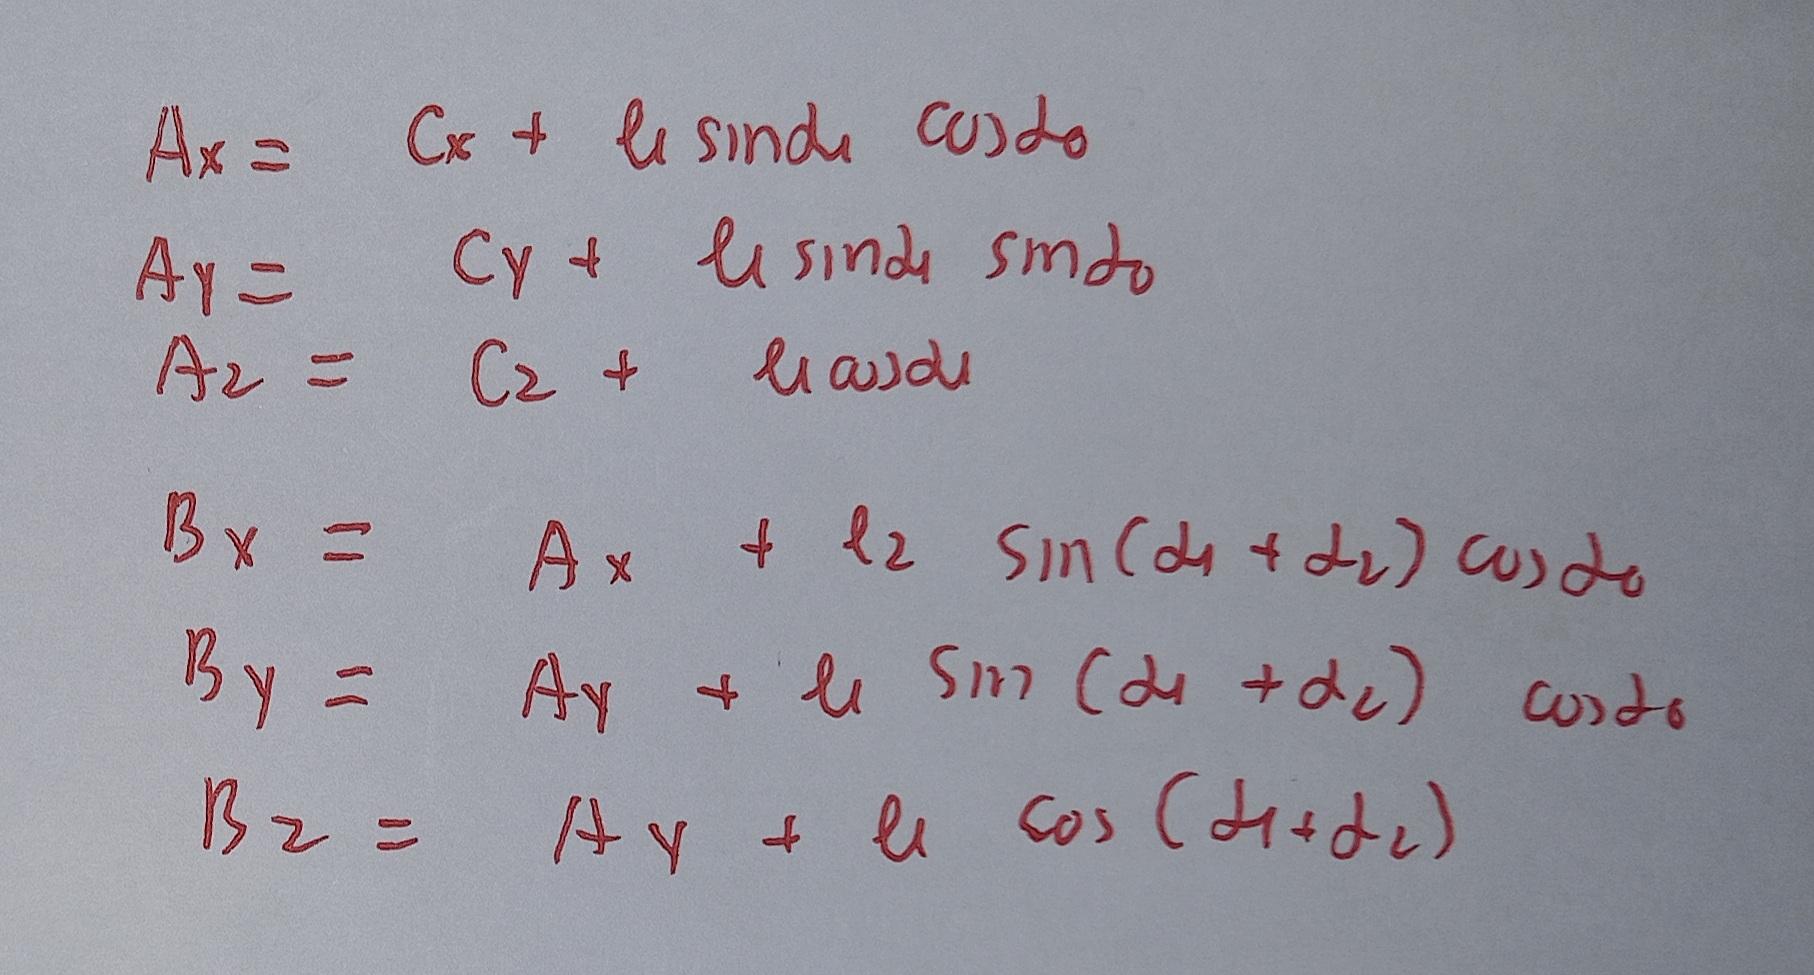 Ax = Cx + l1 sinα1 cosα0
Ay = Cy + l1 sinα1 sinα0
Az = Cz + l1 cosα1
Bx = Ax + l2 sin(α1 + α2) cosα0
By = Ay + l1 sin (α1 + α2) cosα0
Bz = Ay + l1 cos (α1+α2)